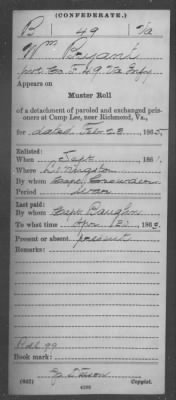 (CONFEDERATE.)
B 49 Va
Wm Bryant
Co. F 49 Va Infy
Appears on
Muster Roll
of a detachment of paroled and exchanged pris-
oners at Camp Lee, near Richmond, Va.,
for dated Feb. 28, 1865.
Enlisted:
When Sept , 1861.
Where
By whom Capt
Period War
Last paid:
By whom Capt Baughn
To what time , 186
Present or absent present
Remarks:
Book mark:
(662) Copyist.